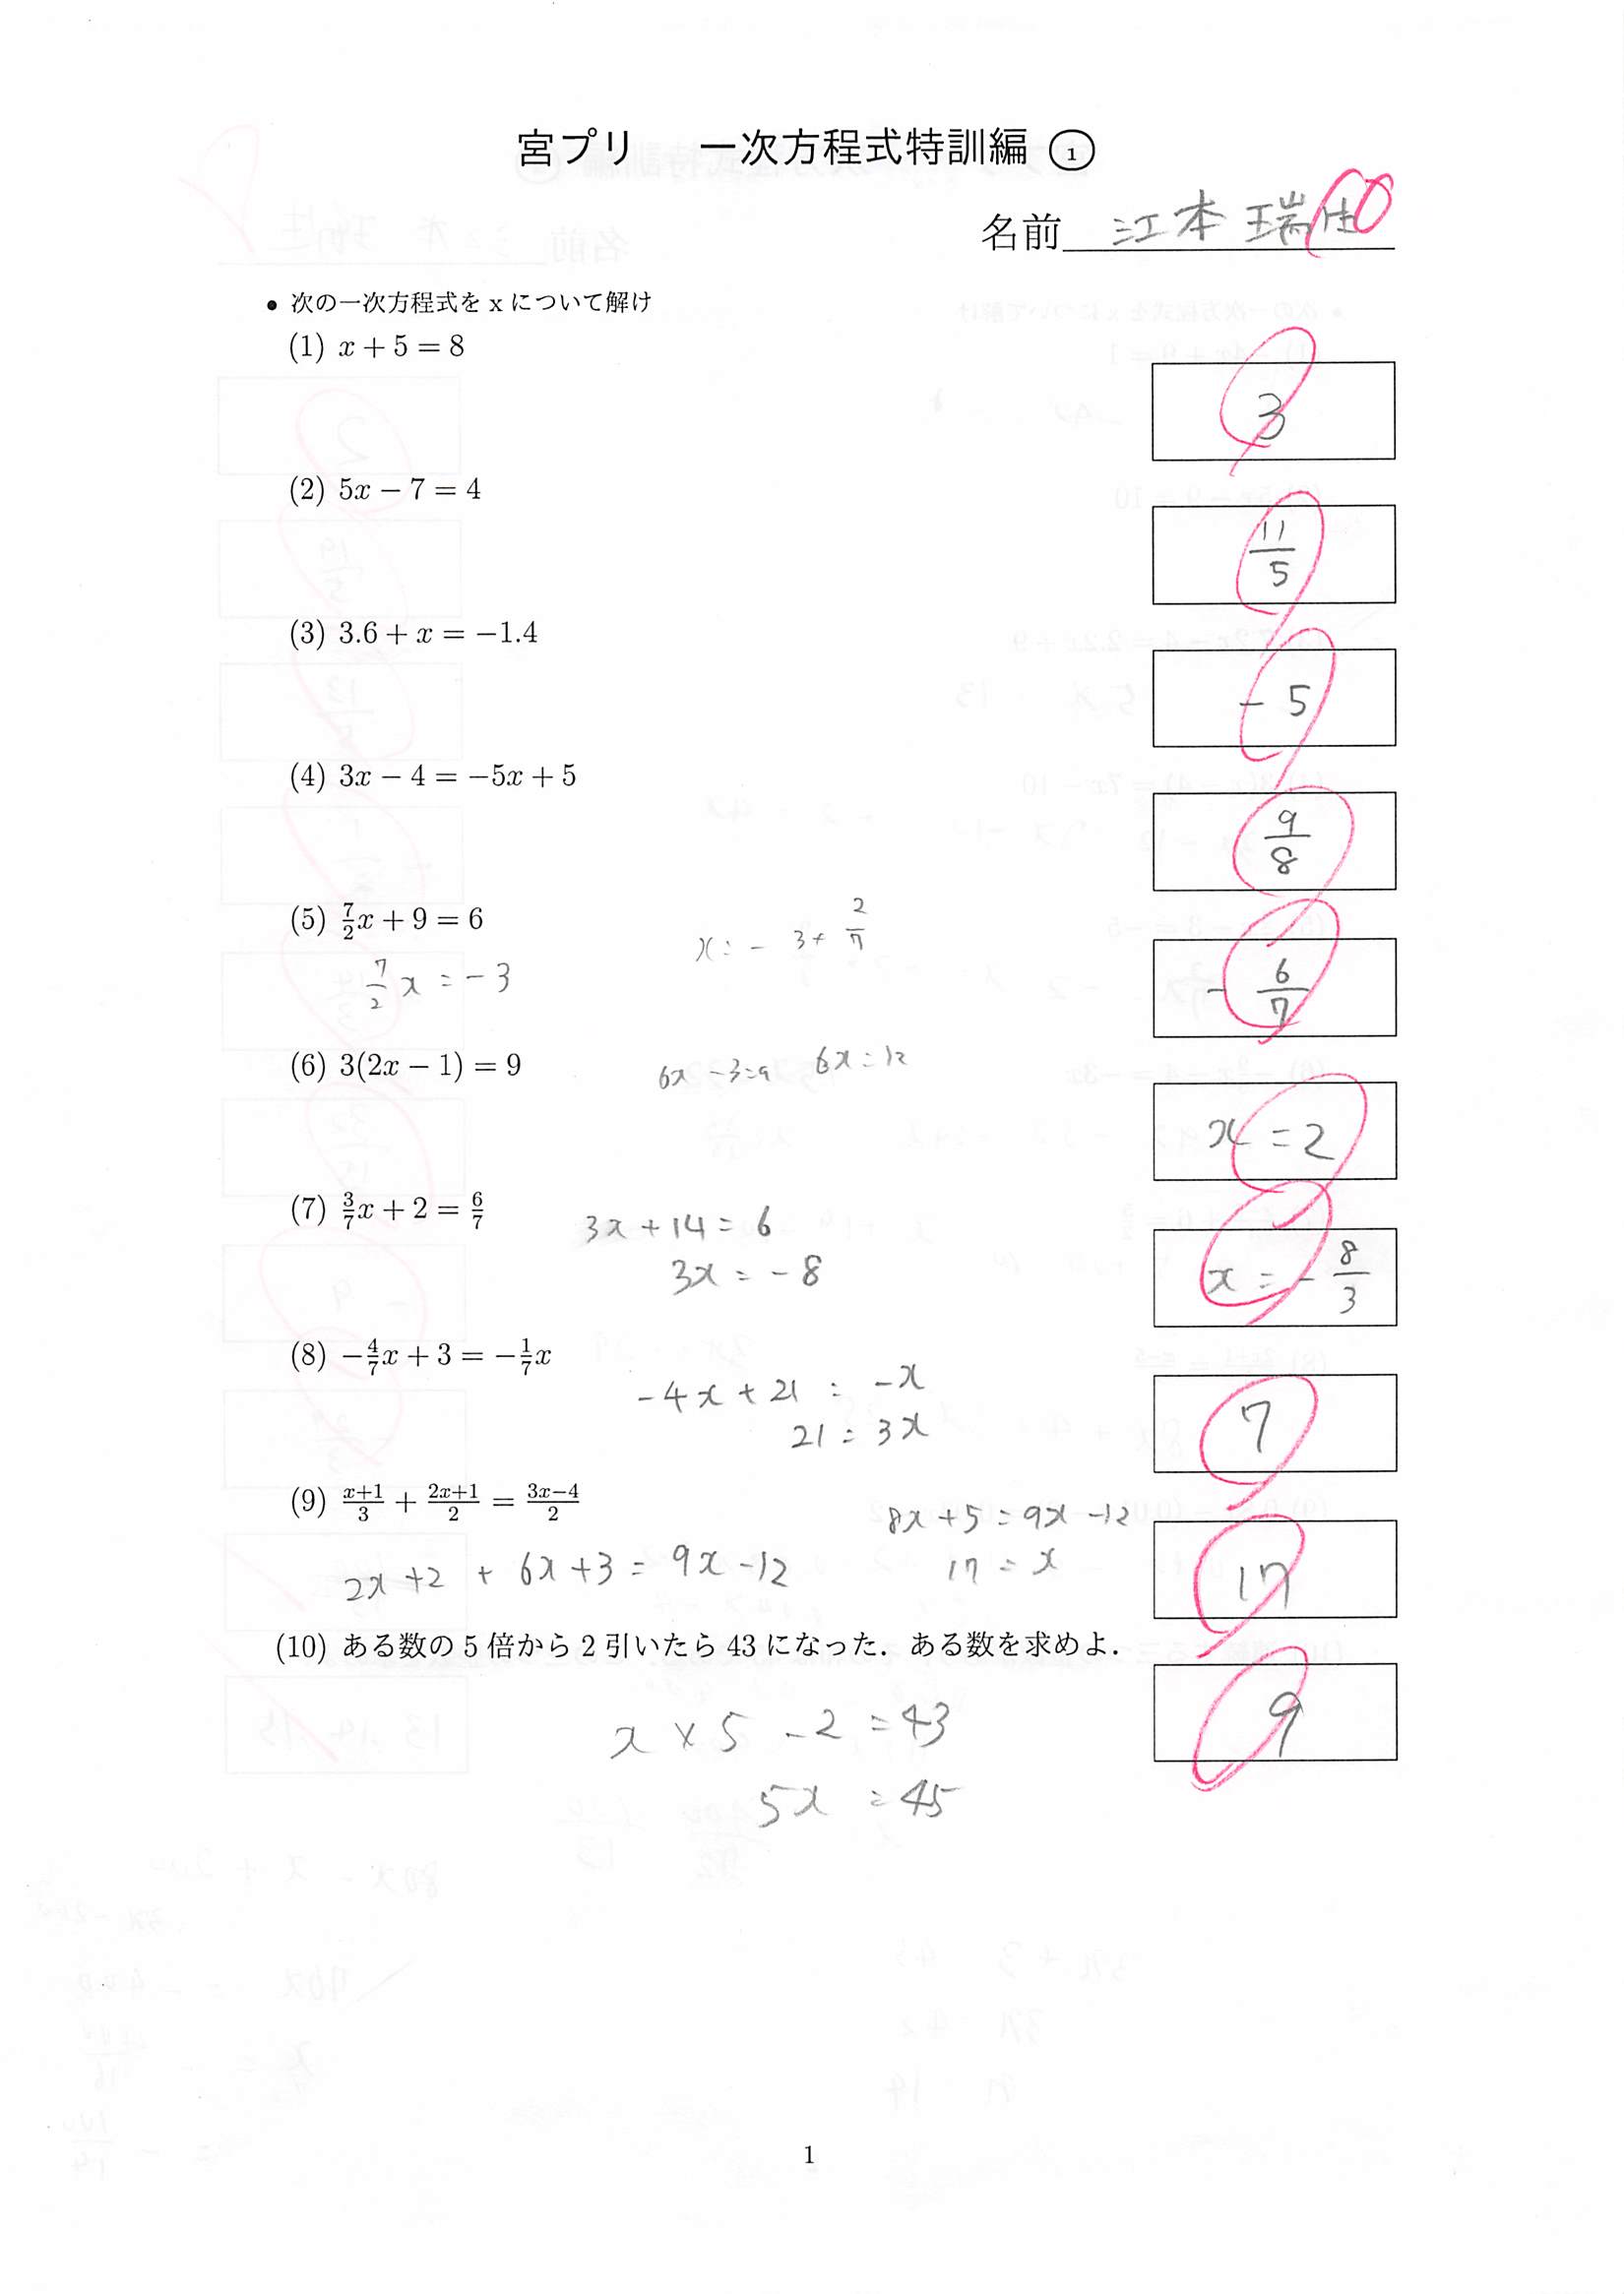 宮プリ 一次方程式特訓編 ①
名前 江本 瑞
• 次の一次方程式を x について解け
(1) x + 5 = 8
3
(2) 5x − 7 = 4
11/5
(3) 3.6 + x = −1.4
− 5
(4) 3x − 4 = −5x + 5
9/8
(5) 7/2 x + 9 = 6
7/2 x = − 3
x = − 3 + 2/7
− 6/7
(6) 3(2x − 1) = 9
6x − 3 = 9 6x = 12
x = 2
(7) 3/7 x + 2 = 6/7
3x + 14 = 6
3x = − 8
x = − 8/3
(8) −4/7 x + 3 = −1/7 x
−4x + 21 = −x
21 = 3x
7
(9) (x+1)/3 + (2x+1)/2 = (3x−4)/2
2x + 2 + 6x + 3 = 9x − 12
8x + 5 = 9x − 12
17 = x
17
(10) ある数の 5 倍から 2 引いたら 43 になった．ある数を求めよ．
x × 5 − 2 = 43
5x = 45
9
1